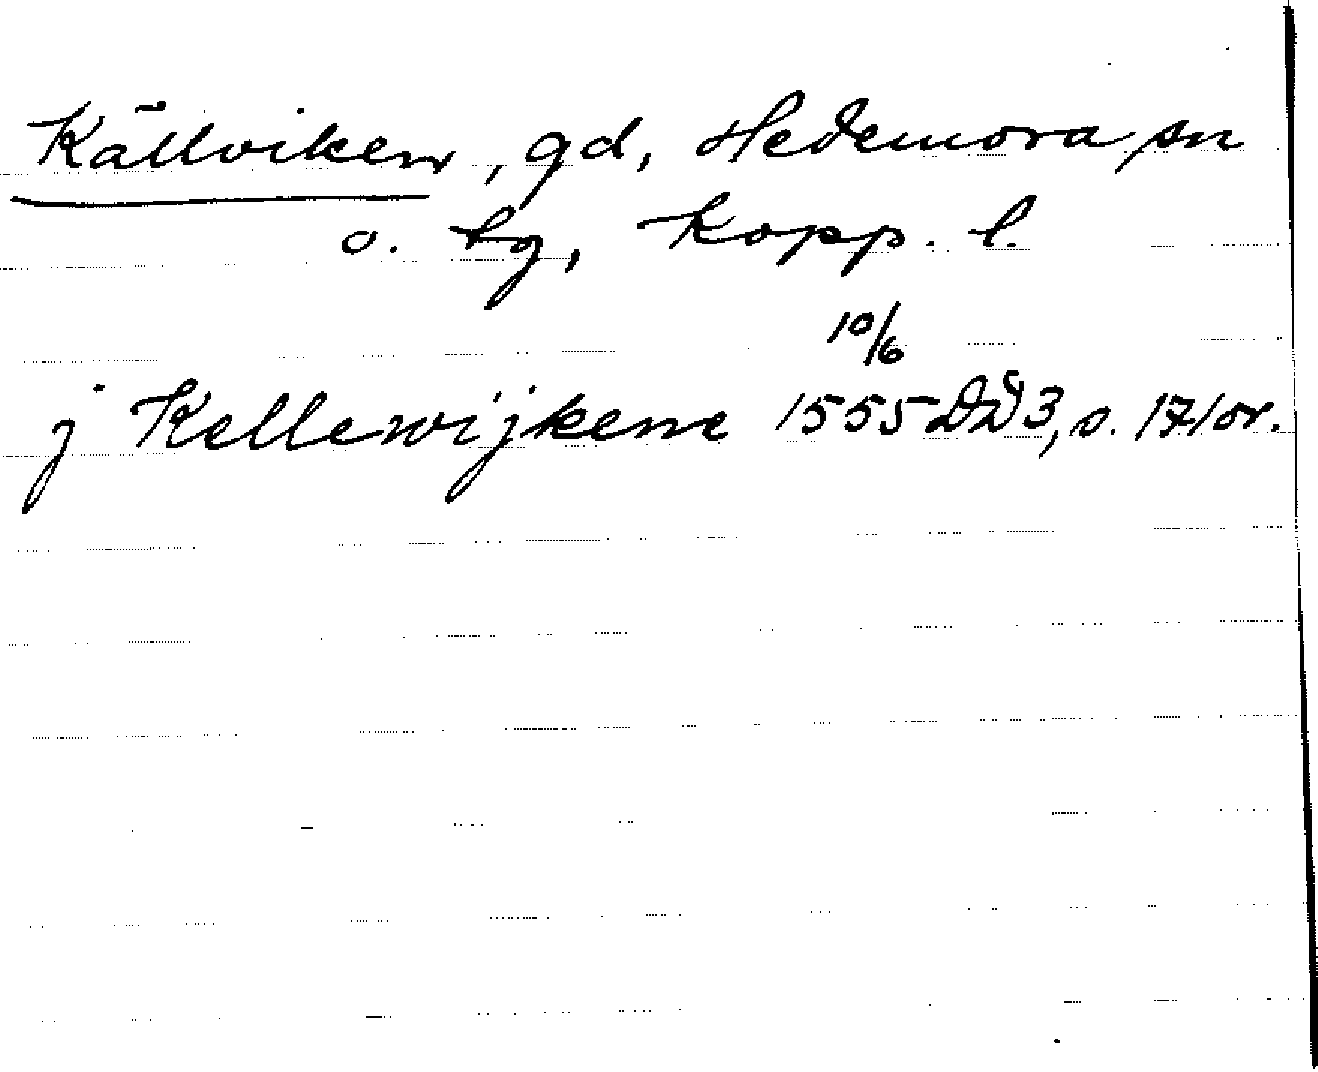 Källviken, gd, Hedemora sn
o. tg, Kopp. l.
10/6
j Kellewijkene 1555 DD 3, s. 17/or.